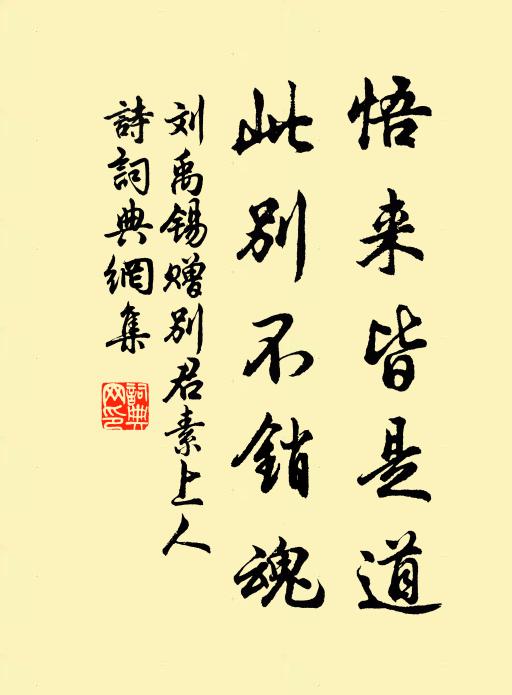 悟来皆是道
此别不销魂
刘禹锡赠别君素上人
詩詞典網集
詞典網印